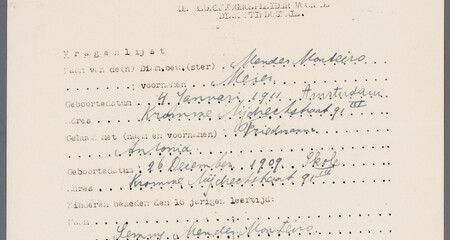 DE BEDRIJFSGEMEENTER VOOR DE
V r a g e n l i j s t
Naam van de(n) Diam.bew.(ster) Mendes Monteiro
; voornamen Meier
Geboortedatum 9 Januari 1911 Amsterdam
Adres Kromme Mijdrechtstraat 91 III
Gehuwd met (naam en voornamen) Vriedmann
Antonia
Geboortedatum 26 December 1909
Adres Kromme Mijdrechtstraat 91 III
Kinderen beneden den 16 jarigen leeftijd:
Naam
Mendes Monteiro